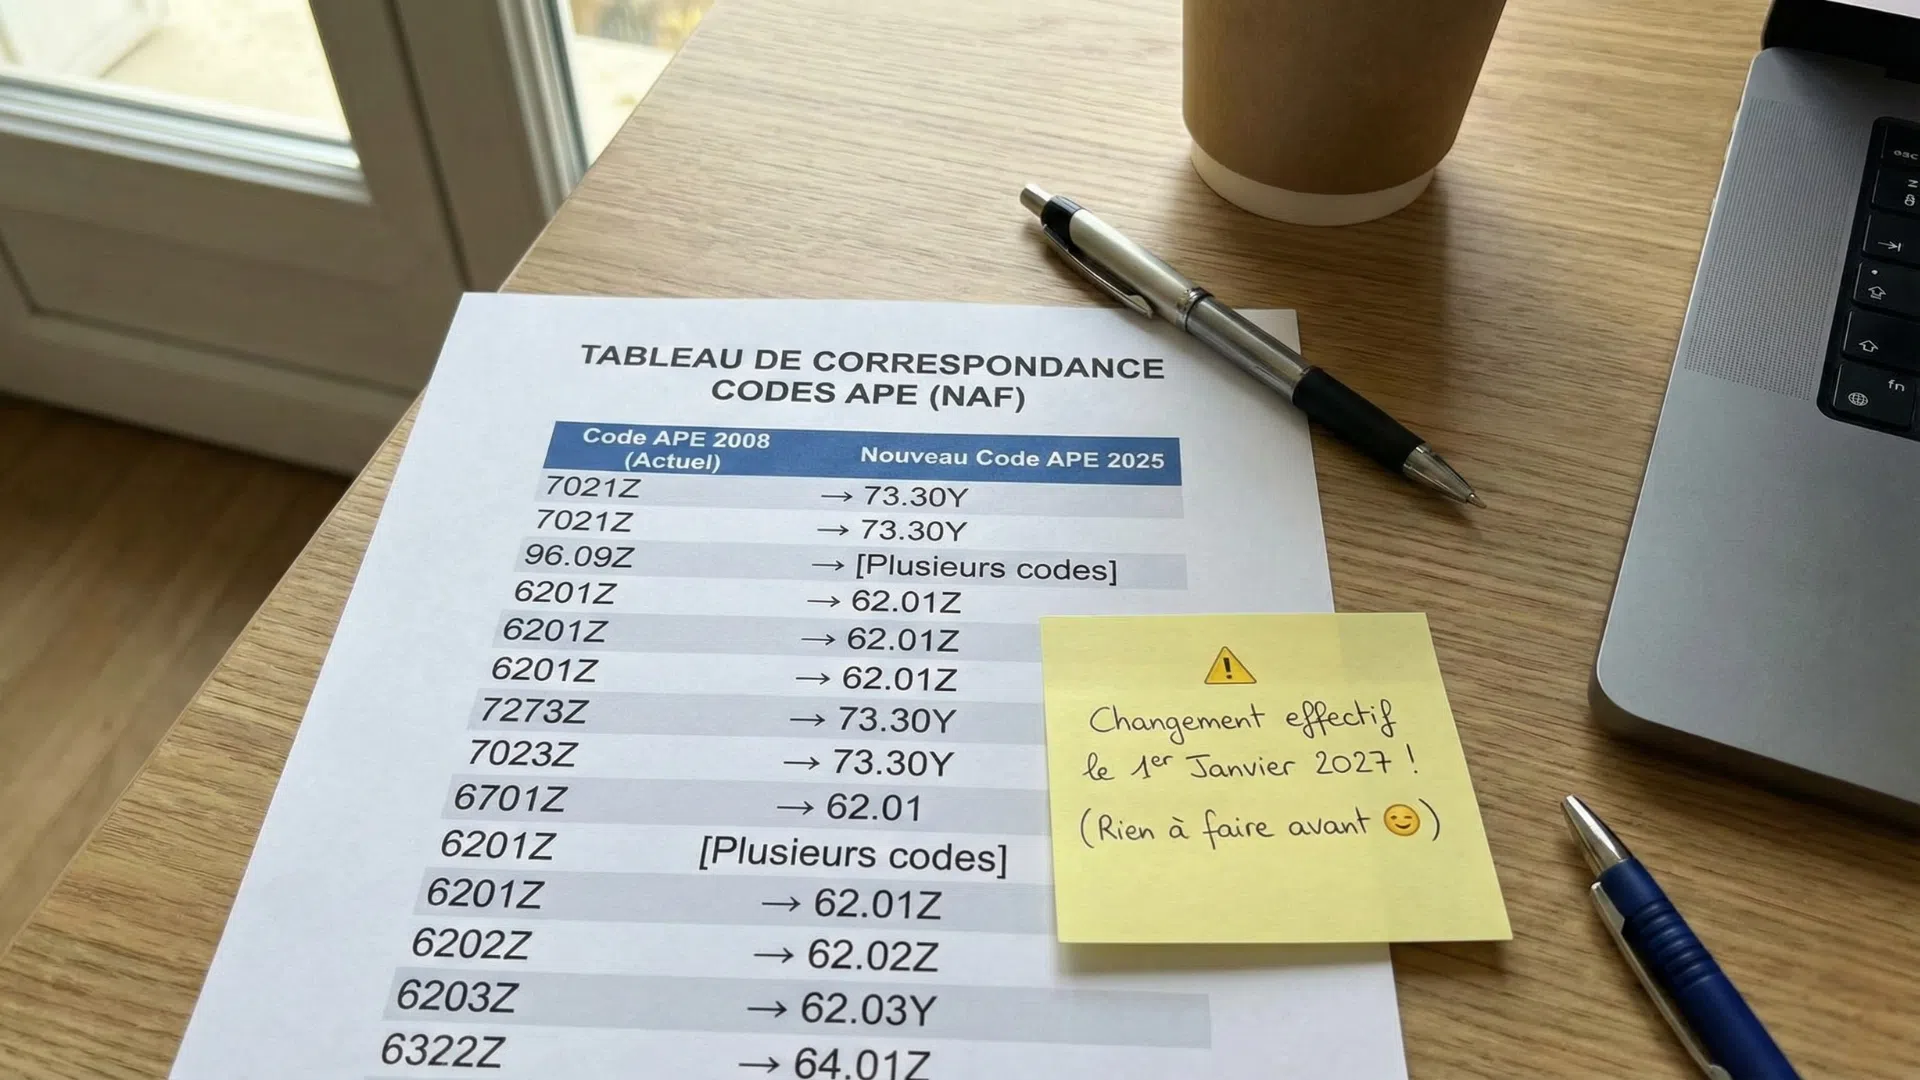 TABLEAU DE CORRESPONDANCE
CODES APE (NAF)
Code APE 2008
(Actuel)
Nouveau Code APE 2025
7021Z → 73.30Y
7021Z → 73.30Y
96.09Z → [Plusieurs codes]
6201Z → 62.01Z
6201Z → 62.01Z
6201Z → 62.01Z
7273Z → 73.30Y
7023Z → 73.30Y
6701Z → 62.01
6201Z [Plusieurs codes]
6201Z → 62.01Z
6202Z → 62.02Z
6203Z → 62.03Y
6322Z → 64.01Z
⚠️
Changement effectif
le 1er Janvier 2027 !
(Rien à faire avant 😉)
esc
fn